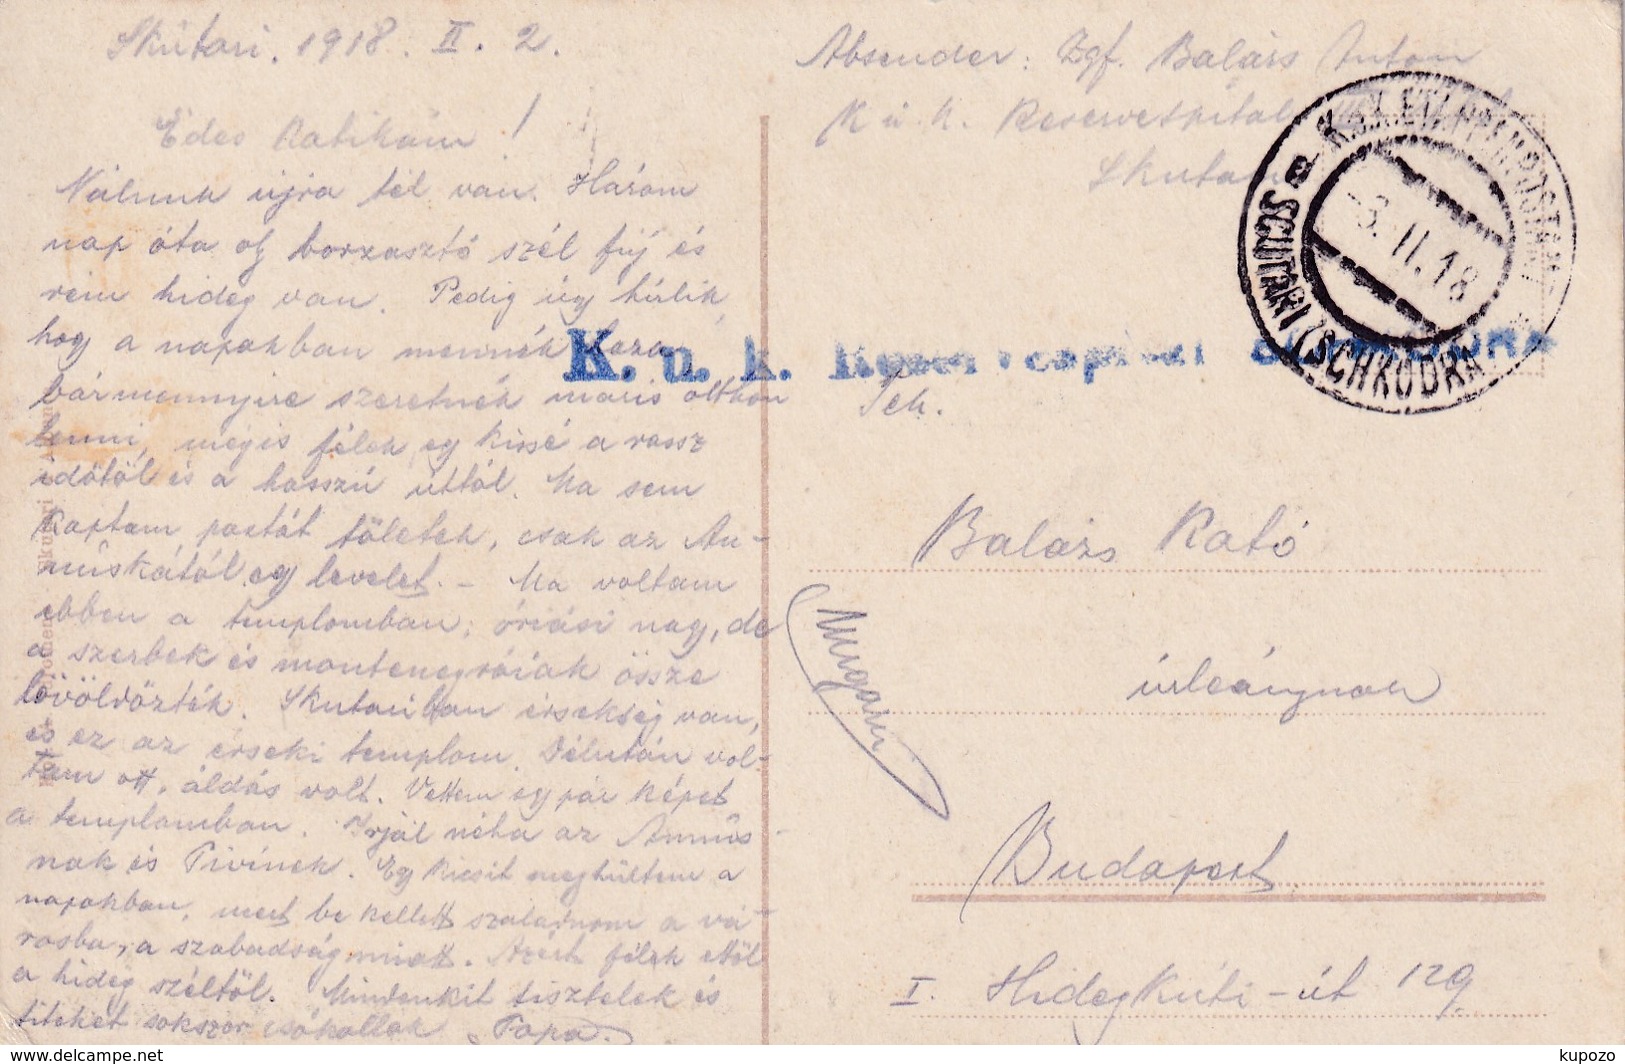 Skutari. 1918. II. 2.
Édes Katikám!
Nálunk újra tél van. Három
nap óta oly borzasztó szél fúj és
rém hideg van. Pedig úgy hírlik,
hogy a napokban mennék haza
bármennyire szeretnék máris otthon
lenni, mégis félek egy kissé a rossz
időtöl és a hosszú úttól. Ma sem
kaptam postát töletek, csak az An-
nuskától egy levelet. – Ma voltam
ebben a templomban; óriási nagy, de
a szerbek és montenegróiak össze
lövöldözték. Skutariban érsekség van,
és ez az érseki templom. Délután vol-
tam ott, áldás volt. Vettem egy pár képet
a templomban. Irjál néha az Annus-
nak és Pivinek. Egy kicsit meghültem a
napokban, mert be kellett szaladnom a vá-
rosba, a szabadság miatt. Azért félek ettöl
a hideg széltöl. Mindenkit tisztelek és
titeket sokszor csókollak Papa.
Absender: Zgf. Balázs Anton
K. u. K. Reservespital
Skutari
K. u. K. ETAPPENPOSTAMT
SCUTARI / SCHKODRA a
-3. II. 18
K. u. k. Reservespital
Balázs Kató
úrleánynak
Ungarn
Budapest
I. Hidegkúti-út 129.
kupozo
www.delcampe.net